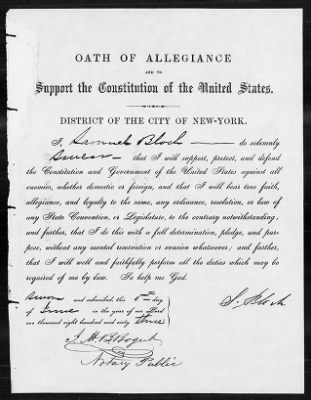 OATH OF ALLEGIANCE
AND TO
Support the Constitution of the United States.
DISTRICT OF THE CITY OF NEW-YORK.
I, Samuel Bloch do solemnly
swear that I will support, protect, and defend
the Constitution and Government of the United States against all
enemies, whether domestic or foreign, and that I will bear true faith,
allegiance, and loyalty to the same, any ordinance, resolution, or law of
any State Convention, or Legislature, to the contrary notwithstanding,
and further, that I do this with a full determination, pledge, and pur-
pose, without any mental reservation or evasion whatsoever; and further,
that I will well and faithfully perform all the duties which may be
required of me by law. So help me God.
Sworn and subscribed, this 6th day
of June in the year of our Lord
one thousand eight hundred and sixty three
S. Bloch
Notary Public